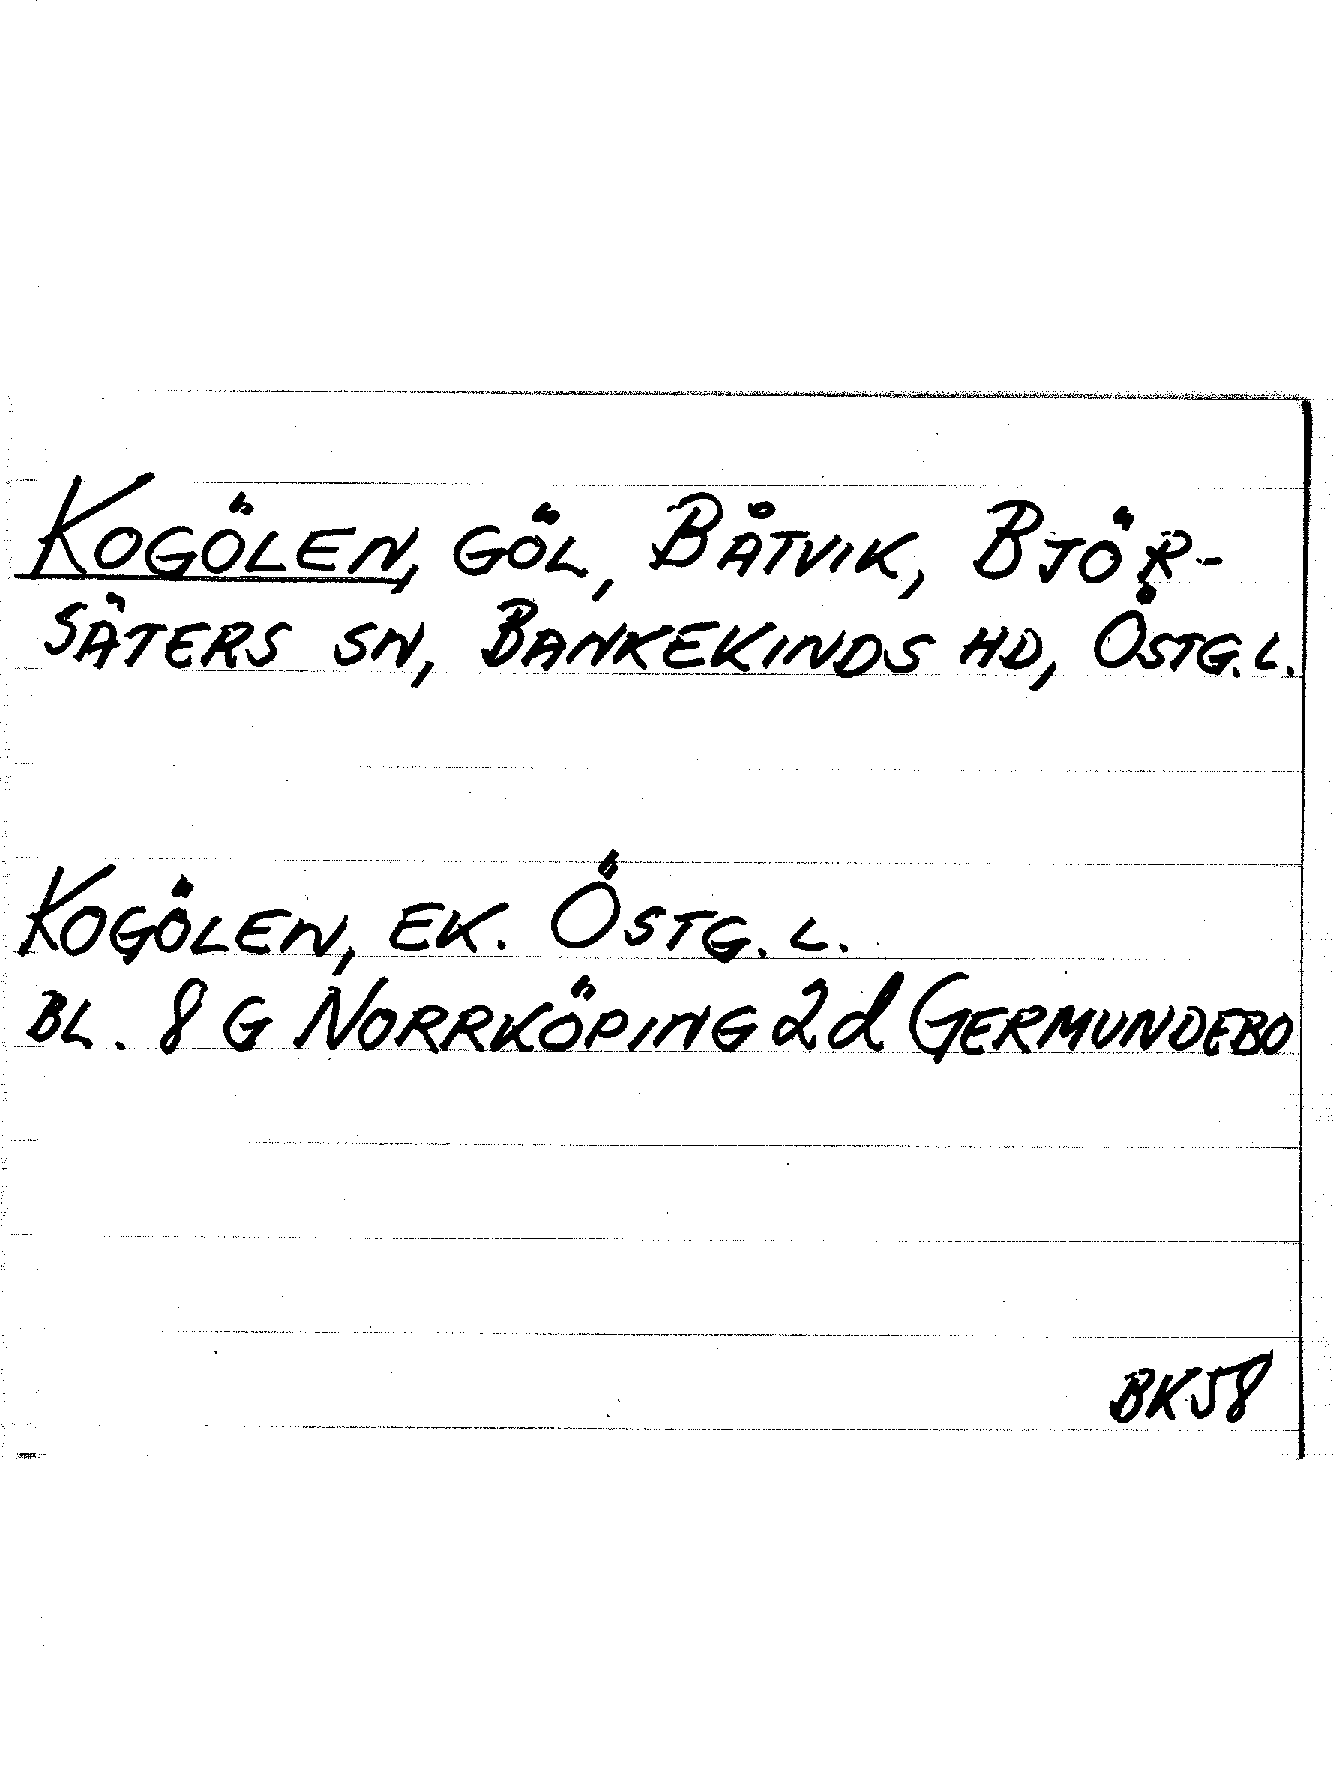 KOGÖLEN, GÖL, BÅTVIK, BJÖR-
SÄTERS SN, BANKEKINDS HD, ÖSTG.L.
KOGÖLEN, EK. ÖSTG. L.
BL. 8 G NORRKÖPING 2d GERMUNDEBO
BK58